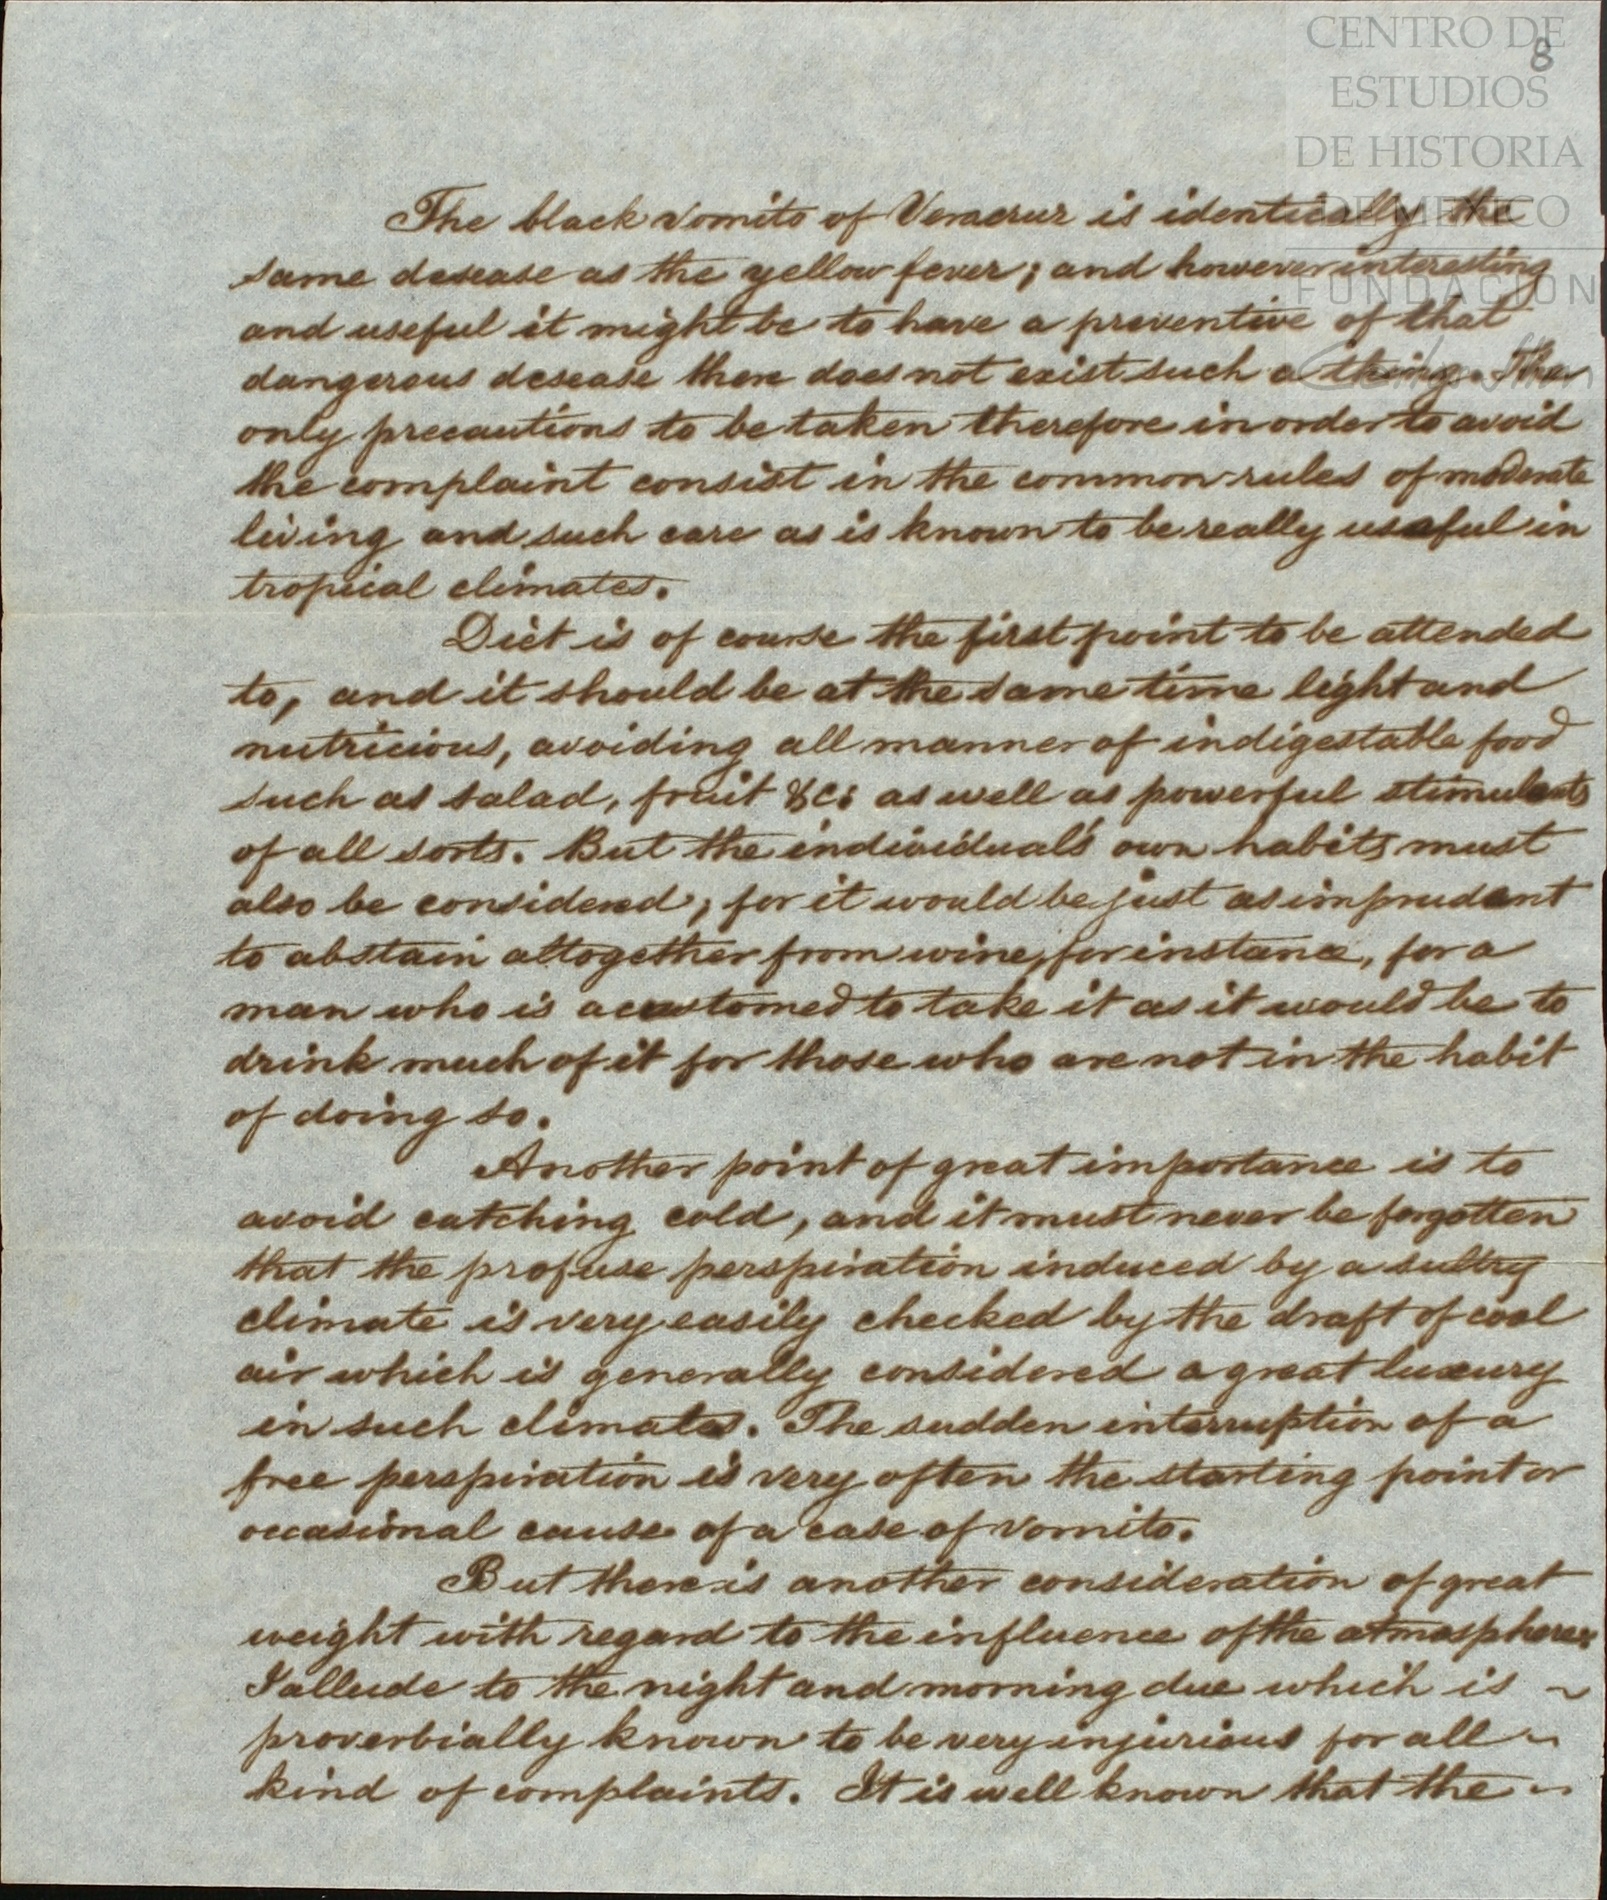 CENTRO DE
ESTUDIOS
DE HISTORIA
DE MEXICO
FUNDACION
8
The black vomito of Veracruz is identically the
same desease as the yellow fever; and however interesting
and useful it might be to have a preventive of that
dangerous desease there does not exist such a thing. The
only precautions to be taken therefore in order to avoid
the complaint consist in the common rules of moderate
living and such care as is known to be really useful in
tropical climates.
Diet is of course the first point to be attended
to, and it should be at the same time light and
nutricious, avoiding all manner of indigestable food
such as salad, fruit &c: as well as powerful stimulants
of all sorts. But the individual's own habits must
also be considered, for it would be just as imprudent
to abstain altogether from wine, for instance, for a
man who is accustomed to take it as it would be to
drink much of it for those who are not in the habit
of doing so.
Another point of great importance is to
avoid catching cold, and it must never be forgotten
that the profuse perspiration induced by a sultry
climate is very easily checked by the draft of cool
air which is generally considered a great luxury
in such climates. The sudden interruption of a
free perspiration is very often the starting point or
occasional cause of a case of vomito.
But there is another consideration of great
weight with regard to the influence of the atmosphere:
I allude to the night and morning due which is ~
proverbially known to be very injurious for all ~
kind of complaints. It is well known that the ~